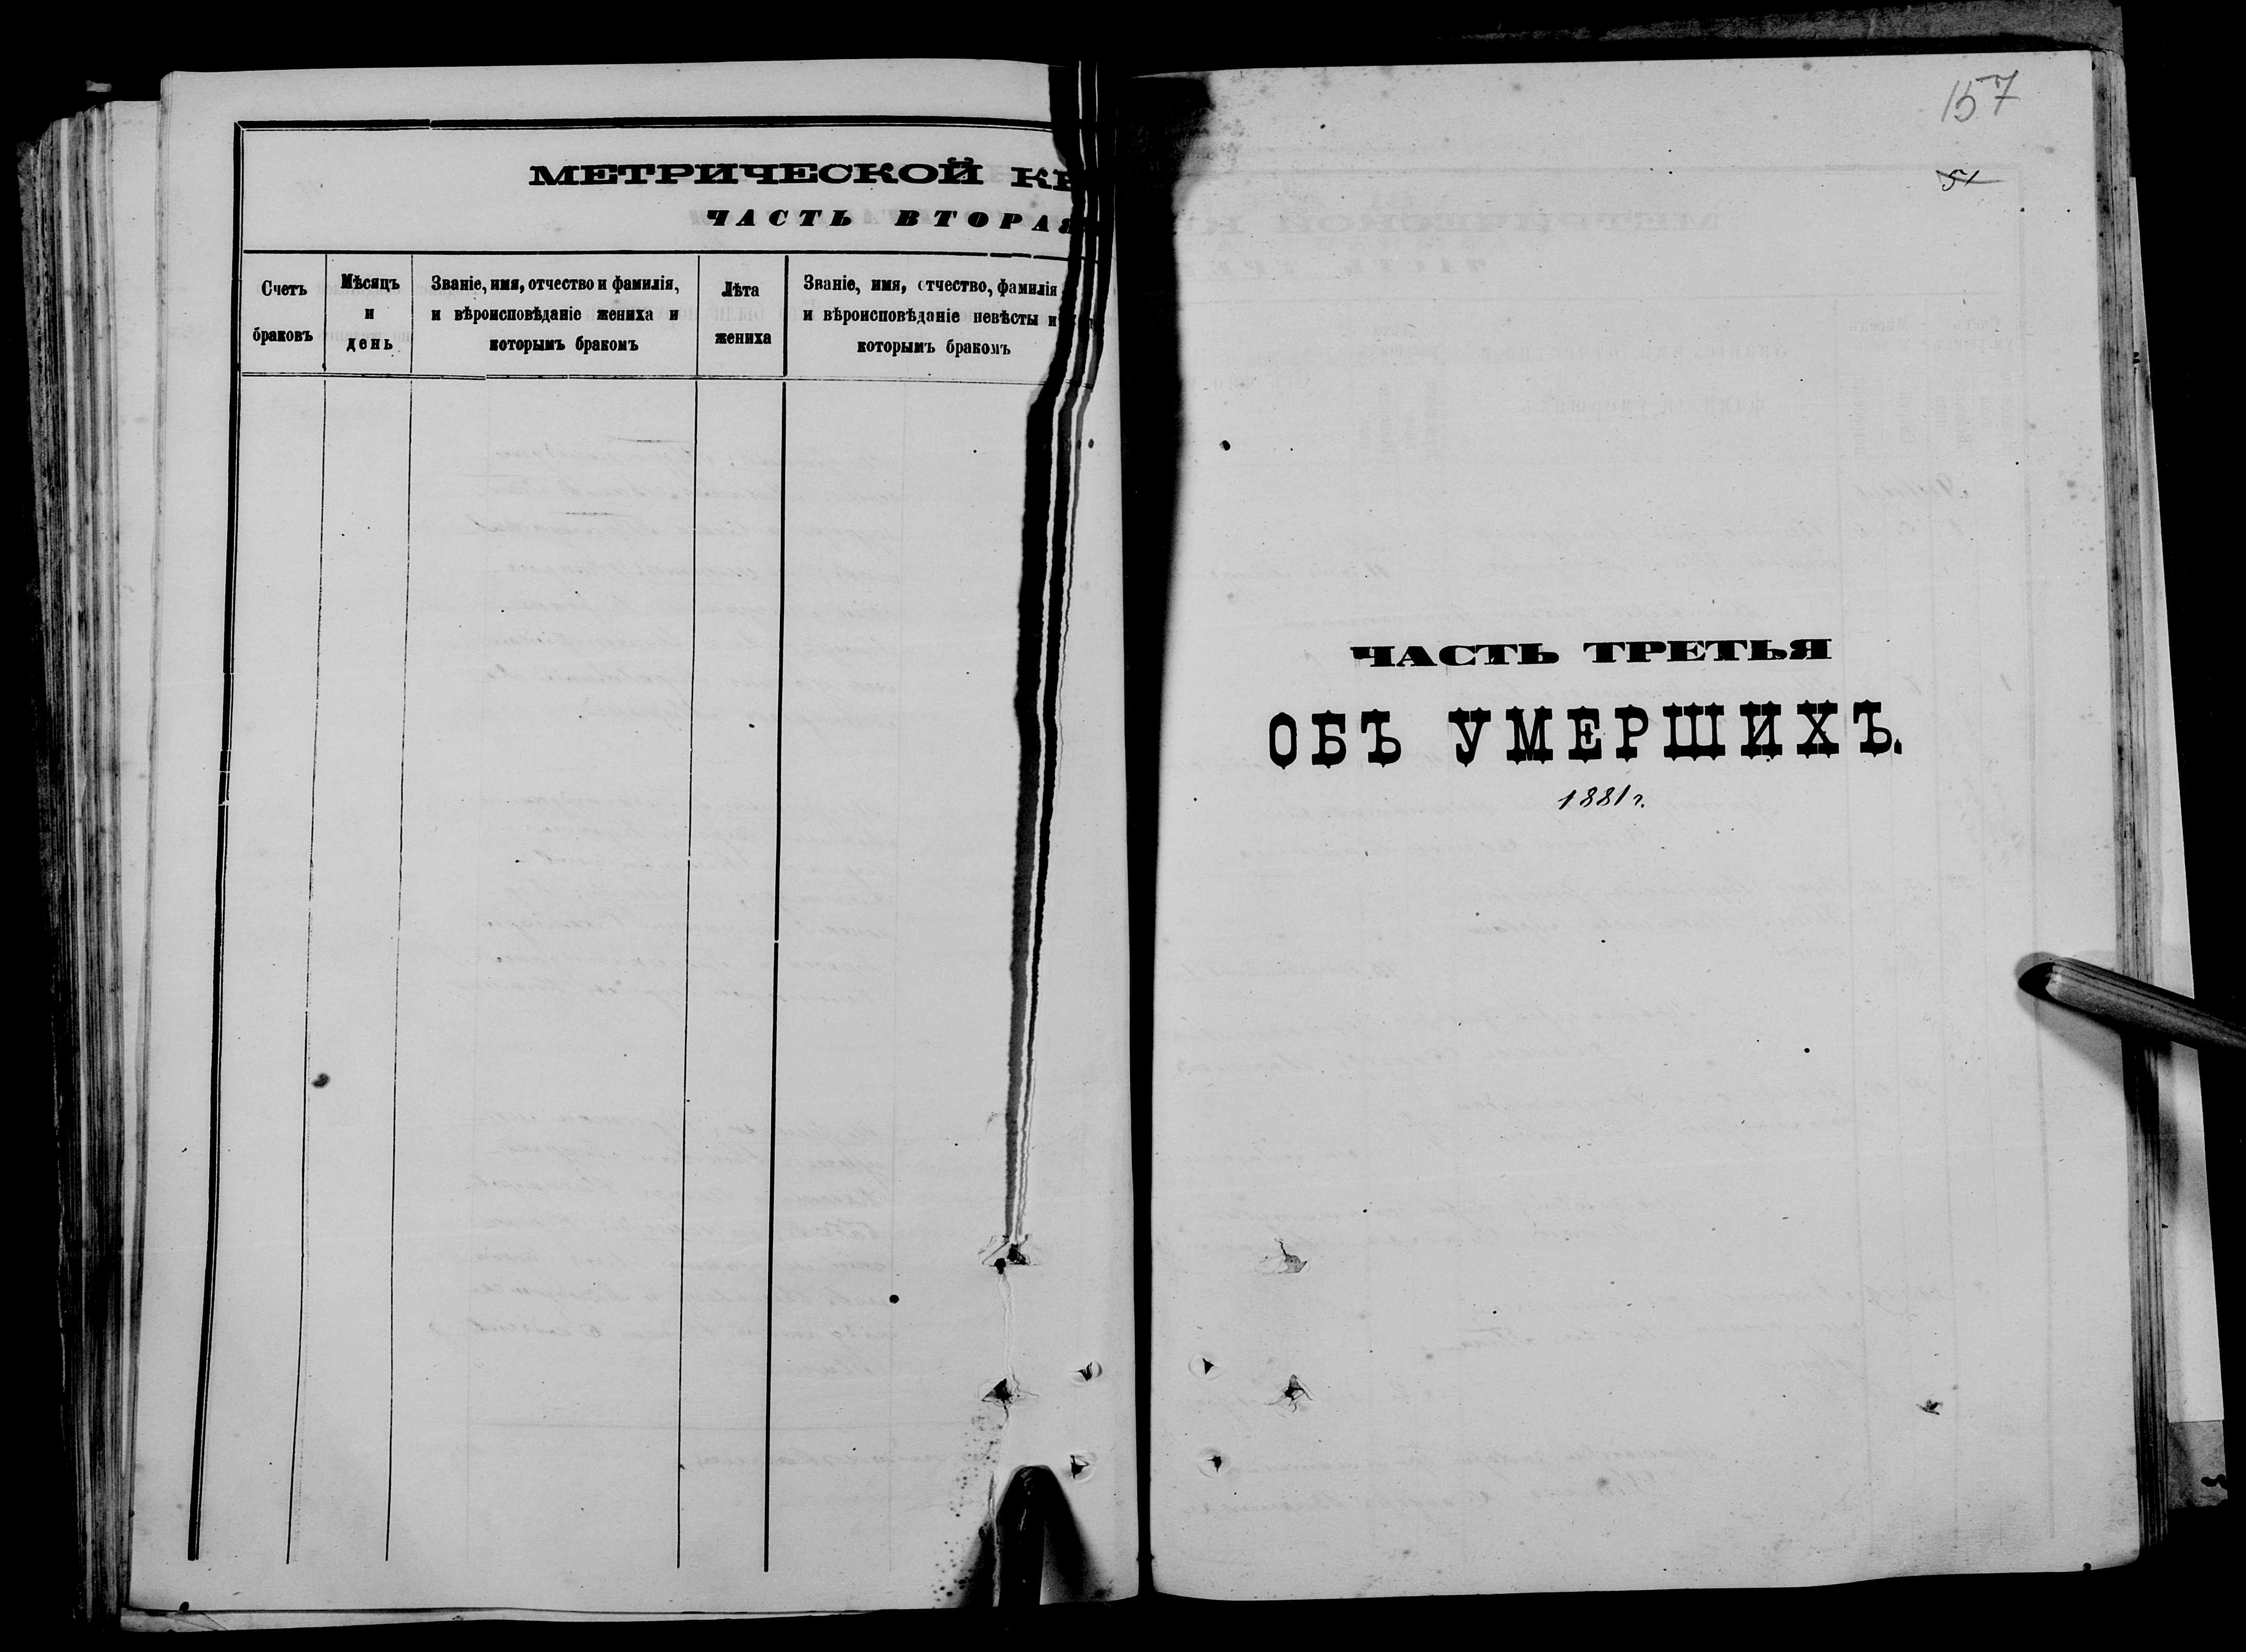 МЕТРИЧЕСКОЙ
ЧАСТЬ ВТОРАЯ
Счетъ
браковъ
Мѣсяцъ
и
день
Званіе, имя, отчество и фамилія,
и вѣроисповѣданіе жениха и
которымъ бракомъ
Лѣта
жениха
Званіе, имя, отчество, фамилія
и вѣроисповѣданіе невѣсты и
которымъ бракомъ
157
51
ЧАСТЬ ТРЕТЬЯ
ОБЪ УМЕРШИХЪ.
1881 г.